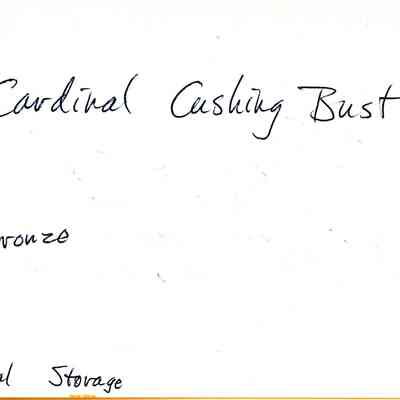 Cardinal Cushing Bust
ronze
al Storage